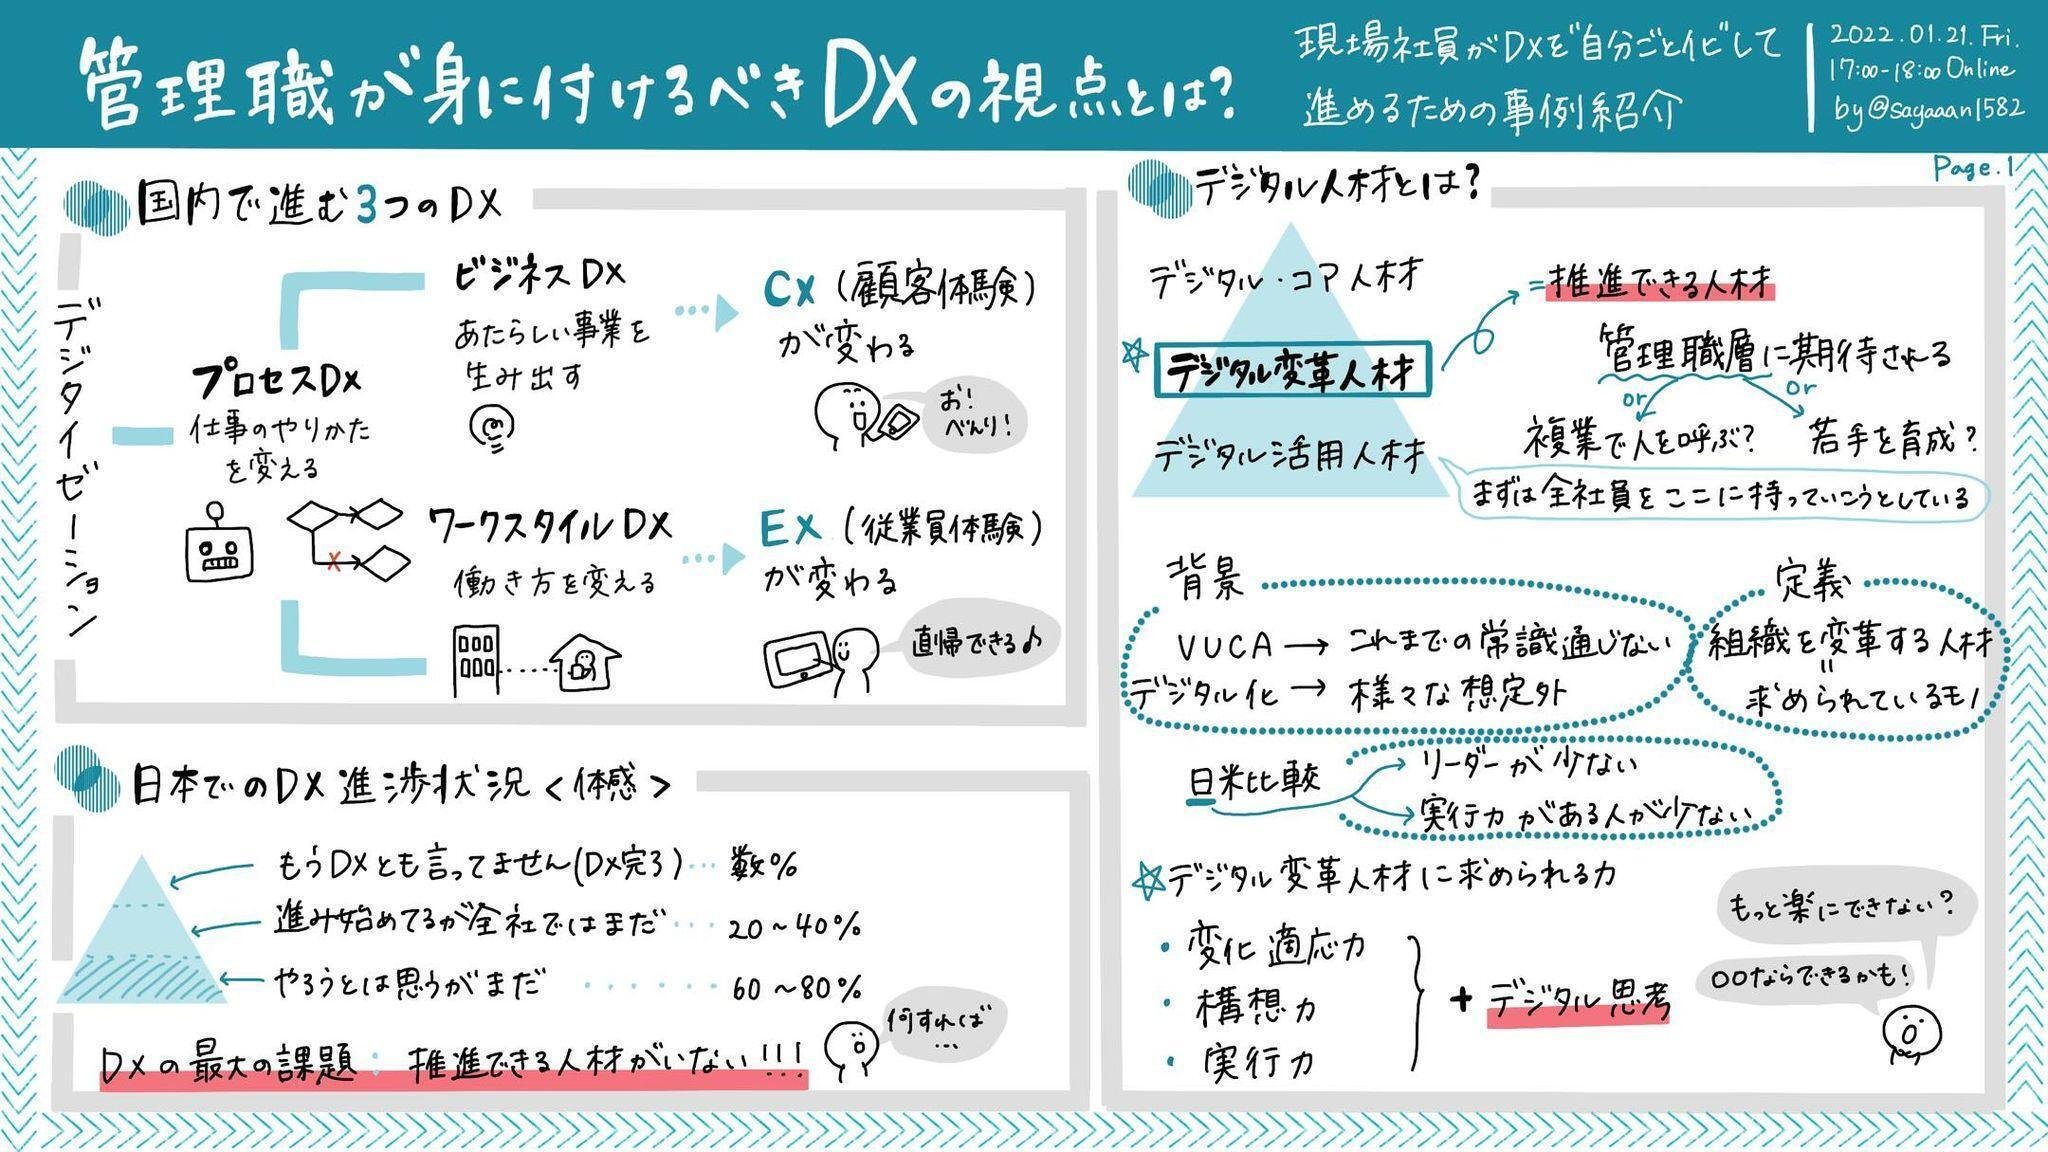 管理職が身に付けるべきDXの視点とは?
現場社員がDXを"自分ごと化"して
進めるための事例紹介
2022.01.21.Fri.
17:00-18:00 Online
by@sayaaan1582
Page.1
国内で進む3つのDX
デジタイゼーション
プロセスDX
仕事のやりかた
を変える
ビジネスDX
あたらしい事業を
生み出す
CX(顧客体験)
が変わる
お!
べんり!
ワークスタイルDX
働き方を変える
EX(従業員体験)
が変わる
直帰できる♪
日本でのDX進渉状況<体感>
もうDXとも言ってません(DX完了)…数%
進み始めてるが全社ではまだ…20~40%
やろうとは思うがまだ……60~80%
DXの最大の課題:推進できる人材がいない!!!
何すれば
…
デジタル人材とは?
デジタル・コア人材
デジタル変革人材
=推進できる人材
管理職層に期待される
or
or
複業で人を呼ぶ?
若手を育成?
デジタル活用人材
まずは全社員をここに持っていこうとしている
背景
VUCA→これまでの常識通じない
デジタル化→様々な想定外
定義
組織を変革する人材
=
求められているモノ
日米比較
リーダーが少ない
実行力がある人が少ない
☆デジタル変革人材に求められる力
・変化適応力
・構想力
・実行力
+デジタル思考
もっと楽にできない?
〇〇ならできるかも!